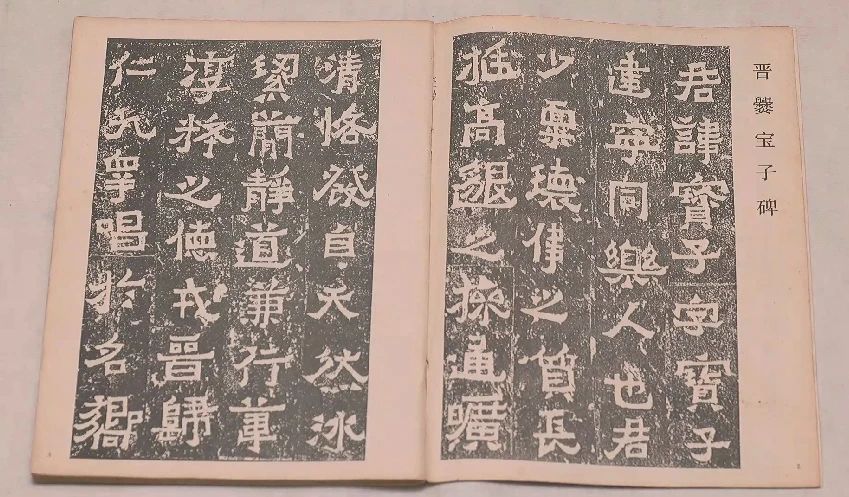 晋爨宝子碑
君諱寶子字寶子
建寧同樂人也君
少稟瓌偉之質長
挺高邈之操通曠
清恪發自天然冰
絜簡靜道兼行葦
淳粹之德戎晉歸
仁九皐唱於名響